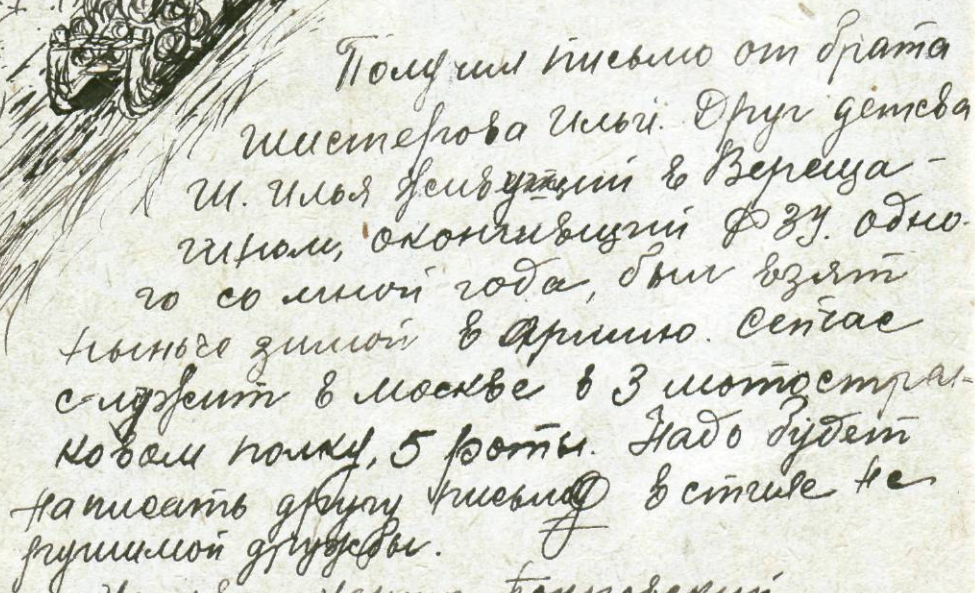 Получил письмо от брата
Шистерова Ильи. Друг детсва
Ш. Илья живущий в Вереща-
гином, окончивщий ФЗУ. одно-
го со мной года, был взят
нынче зимой в Армию. Сейчас
служит в Москве в 3 мотострел-
ковом полку, 5 роты. Надо будет
написать другу письмо в стиле не
рушимой дружбы.